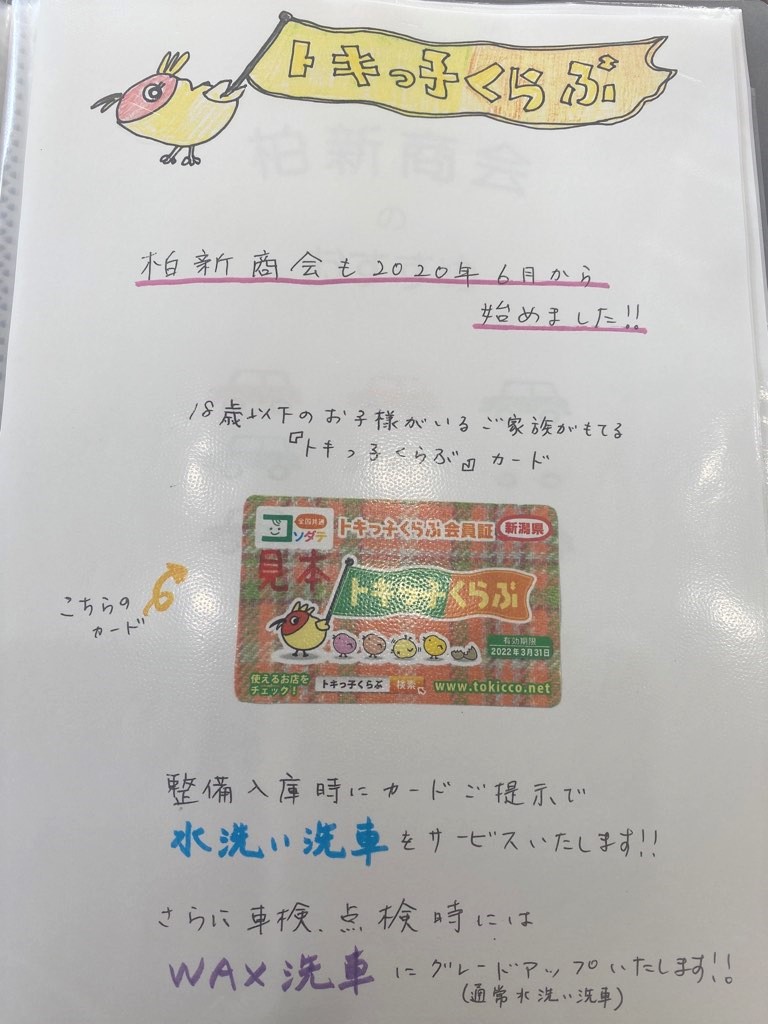 トキっ子くらぶ
柏新商会も2020年6月から
始めました!!
18歳以下のお子様がいるご家族がもてる
『トキっ子くらぶ』カード
こちらの
カード
コソダテ
全国共通
トキっ子くらぶ会員証
新潟県
見本
トキっ子くらぶ
有効期限
2022年3月31日
使えるお店を
チェック!
トキっ子くらぶ 検索
www.tokicco.net
整備入庫時にカードご提示で
水洗い洗車をサービスいたします!!
さらに車検、点検時には
WAX洗車にグレードアップいたします!!
(通常水洗い洗車)
柏新商会
の